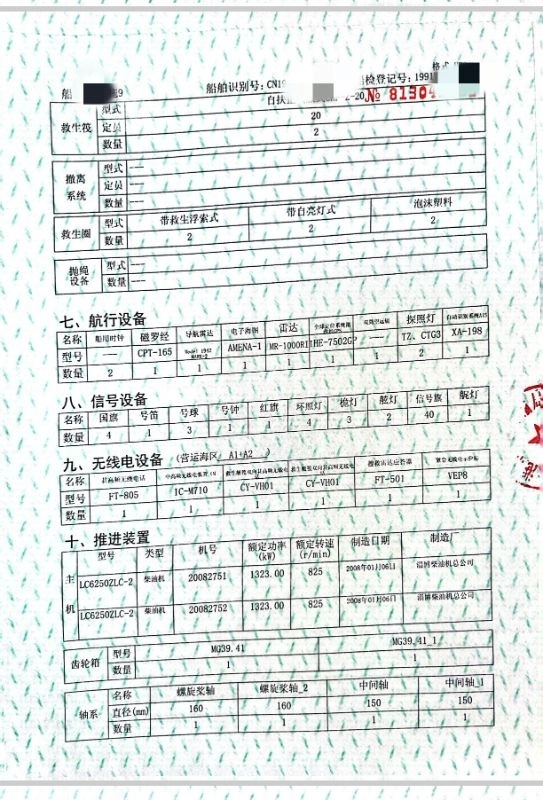 船 9 船舶识别号:CN19 检登记号:1991
№ 81504
救生筏 型式
定员 20
数量 2
撤离系统 型式 ---
定员 ---
数量 ---
救生圈 型式 带救生浮索式 带自亮灯式 泡沫塑料
数量 2 2 2
抛绳设备 型式 ---
数量 ---
七、航行设备
名称 船用时钟 磁罗经 导航雷达 电子海图 雷达 探照灯
型号 --- CPT-165 AMENA-1 MR-1000RII HE-7502GP --- TZ、CTG3 XA-198
数量 2 1 1 1 1 1 1 2 1
八、信号设备
名称 国旗 号笛 号球 号钟 红旗 环照灯 桅灯 舷灯 信号旗 艉灯
数量 4 1 3 1 1 4 3 2 40 1
九、无线电设备 (营运海区 A1+A2 )
名称 甚高频无线电话 搜救雷达应答器
型号 FT-805 IC-M710 CY-VH01 CY-VH01 FT-501 VEP8
数量 1 1 1 1 1 1
十、推进装置
主机 型号 类型 机号 额定功率(kW) 额定转速(r/min) 制造日期 制造厂
LC6250ZLC-2 柴油机 20082751 1323.00 825 2008年01月06日 淄博柴油机总公司
LC6250ZLC-2 柴油机 20082752 1323.00 825 2008年01月06日 淄博柴油机总公司
齿轮箱 型号 MG39.41 MG39.41_1
数量 1 1
轴系 名称 螺旋桨轴 螺旋桨轴_2 中间轴 中间轴_1
直径(mm) 160 160 150 150
数量 1 1 1 1